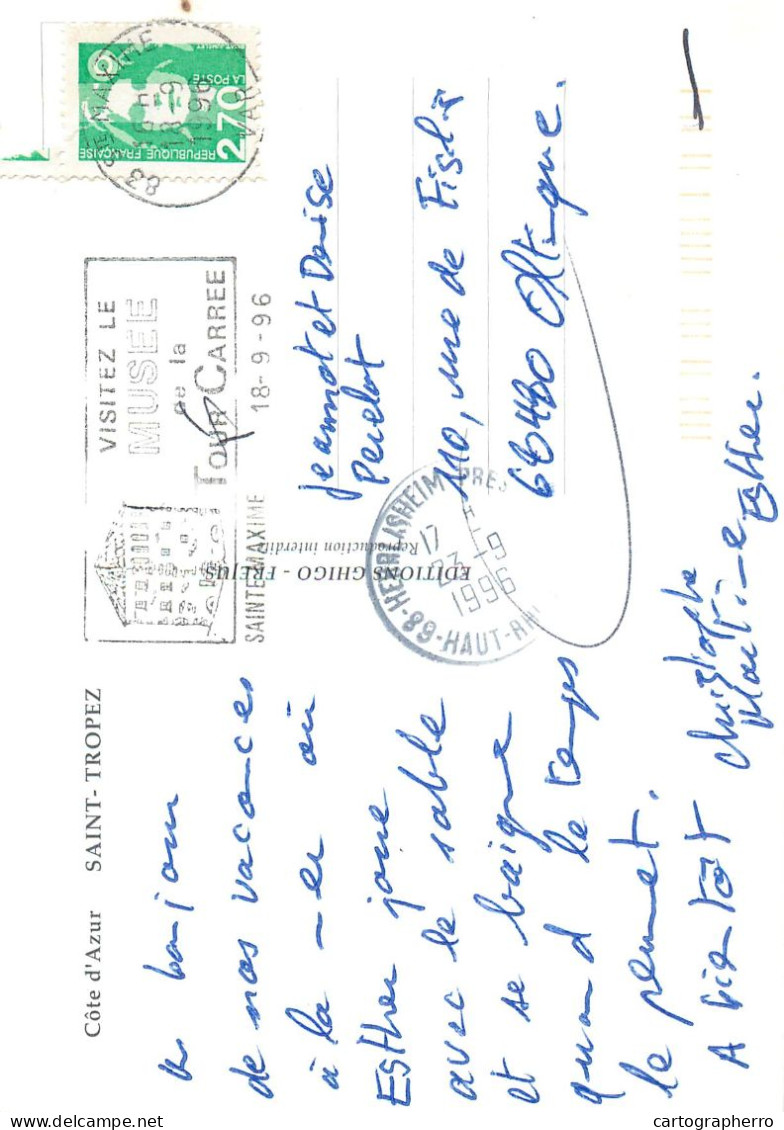 Côte d'Azur SAINT-TROPEZ
un bonjour
de nos vacances
à la mer où
Esther joue
avec le sable
et se baigne
quand le temps
le permet.
A bientôt
Christophe
Martine Esther.
EDITIONS GHIGO - FREJUS
Reproduction interdite
VISITEZ LE
MUSEE
de la
TOUR CARREE
SAINTE-MAXIME 18-9-96
83 STE MAXIME
16 H
18-9
1996
VAR
REPUBLIQUE FRANÇAISE
2,70
LA POSTE
Jeannot et Denise
Perelot
110, rue de
68480 Oltingue.
68-HAUT-RHIN
17 H
23-9
1996
cartographerro